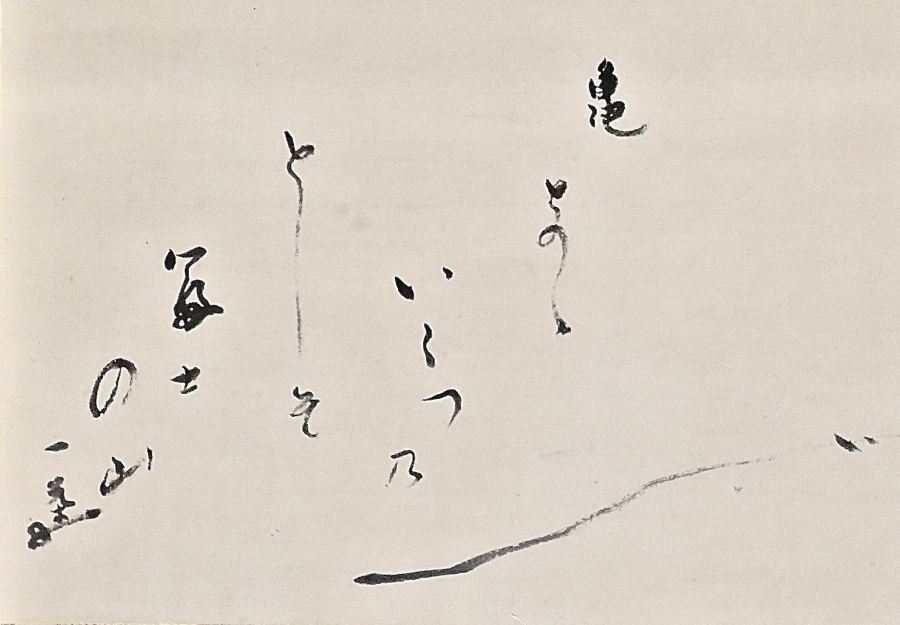 亀
とのゝ
いくつ乃
としそ
冨士
の山
一茶